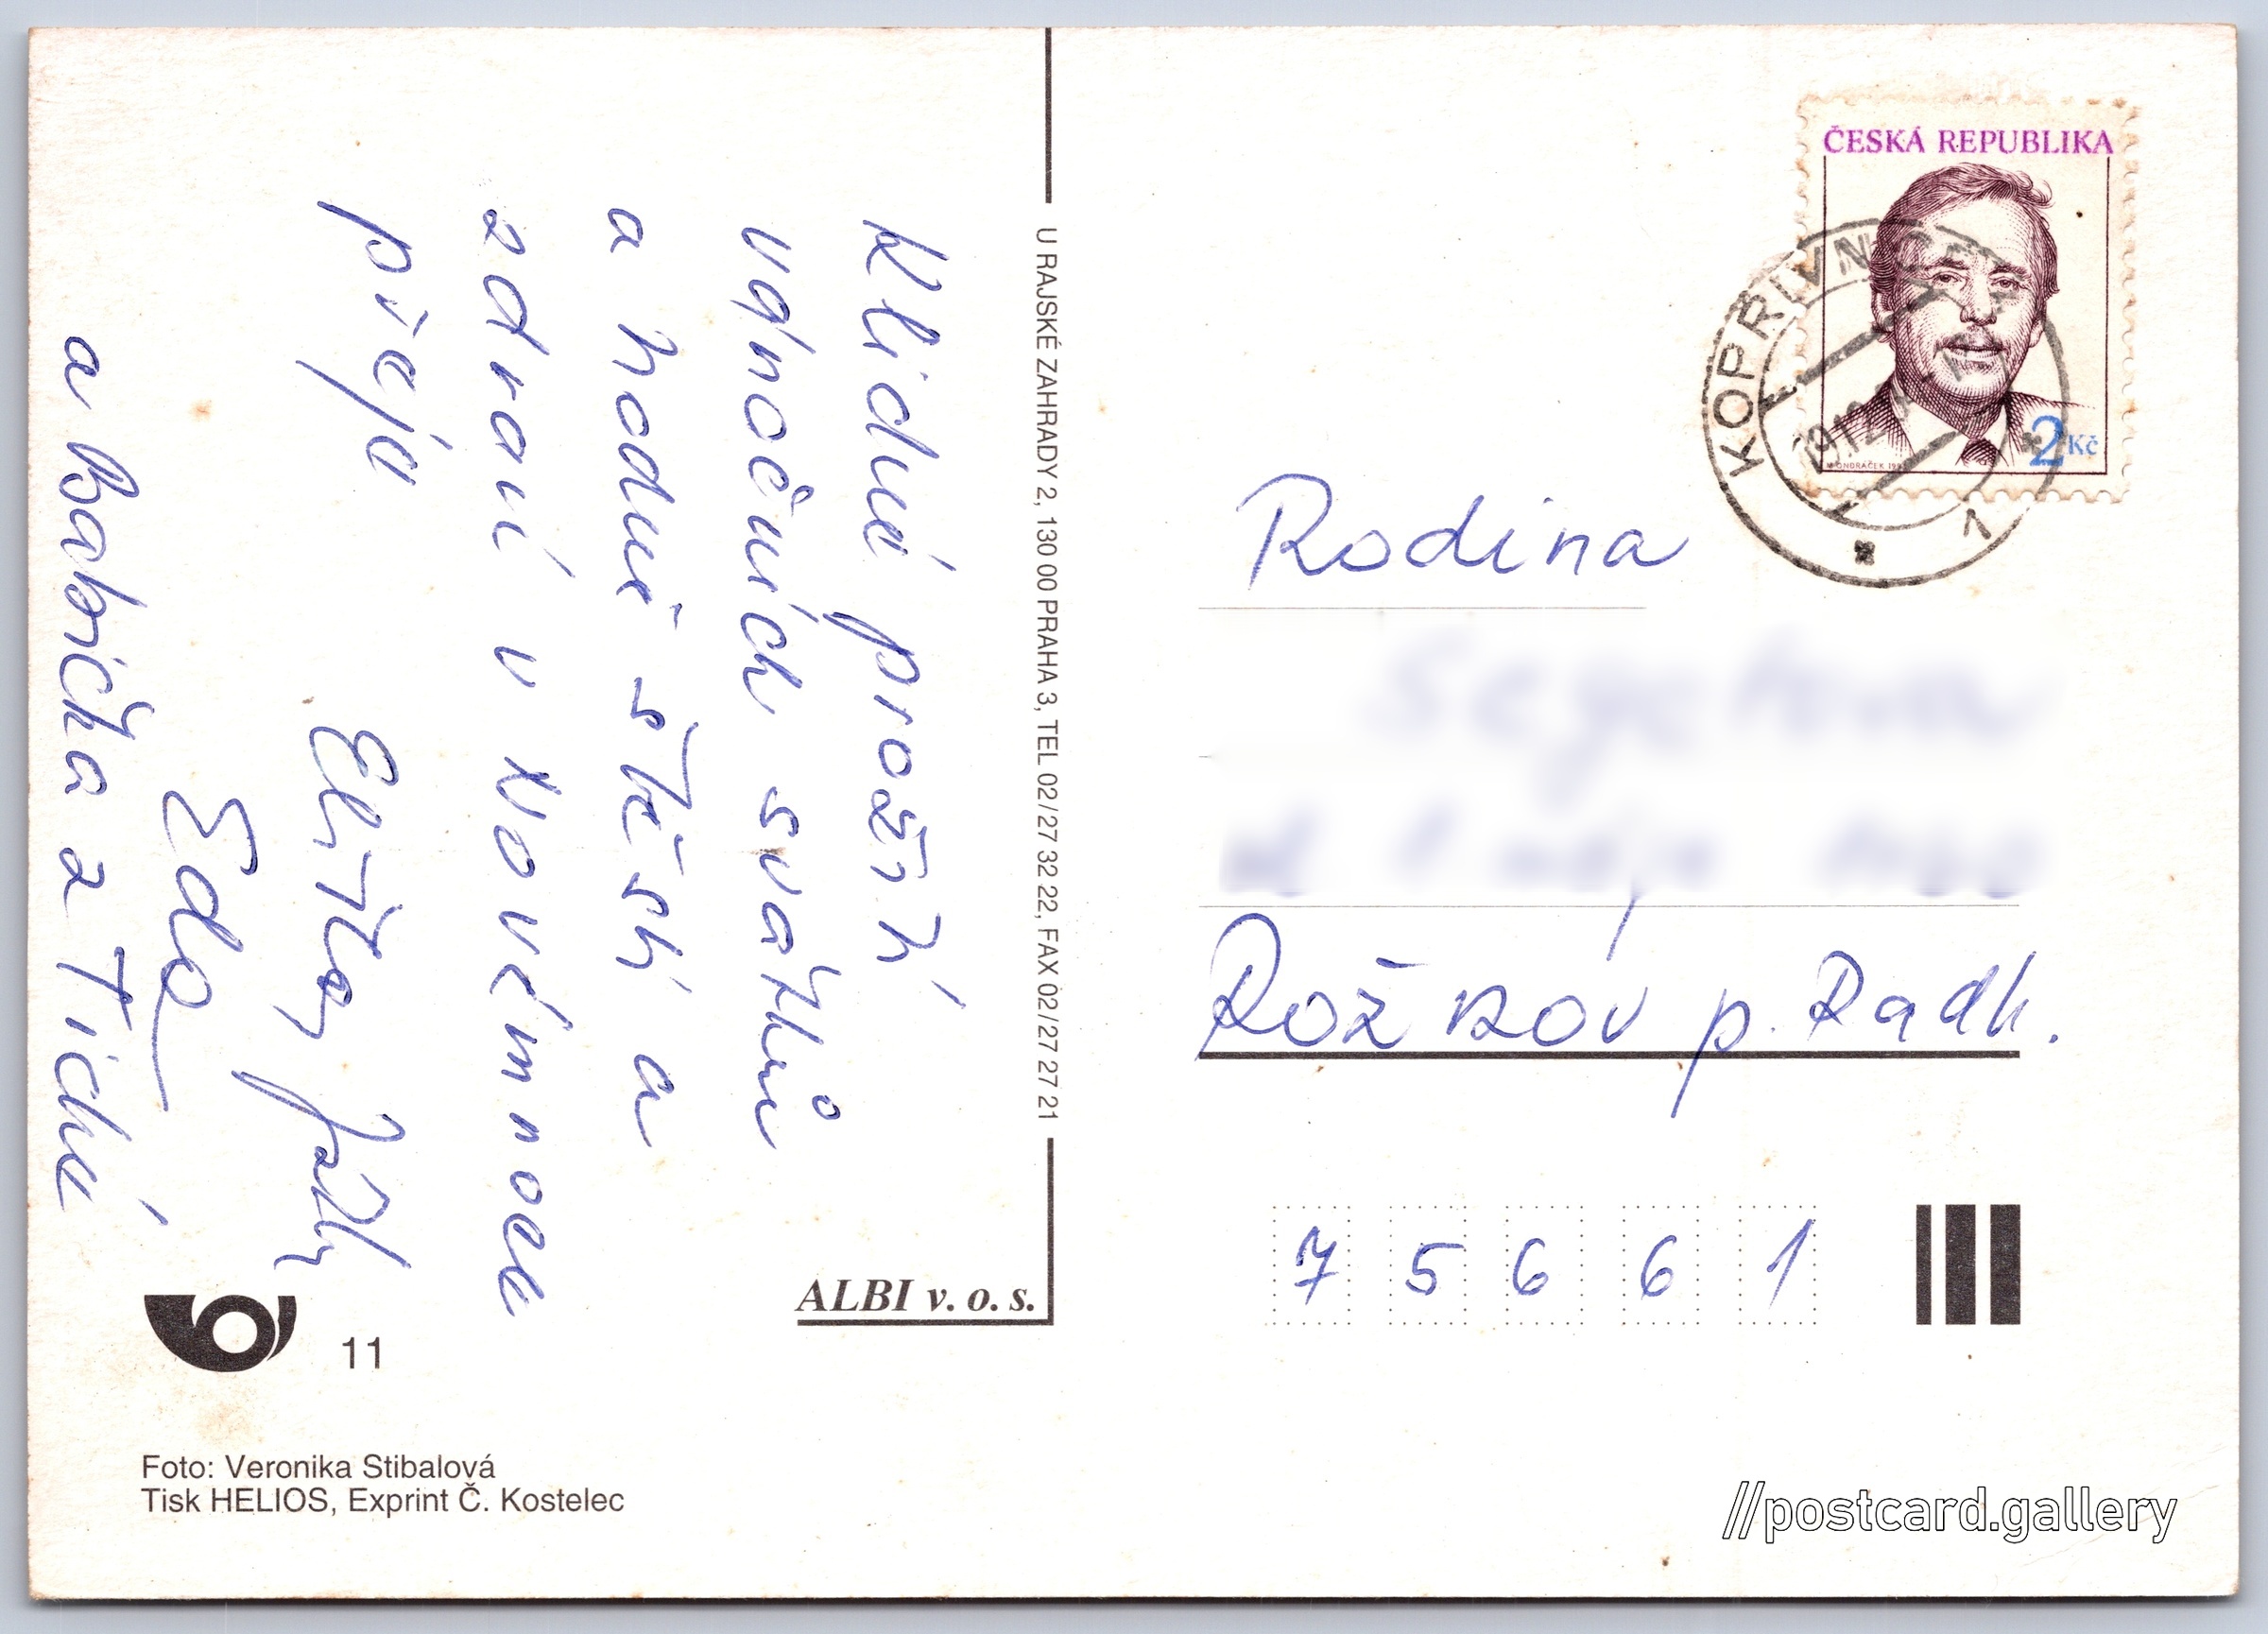 Klidné prožití
vánočních svátků
a hodně štěstí a
zdraví v Novém roce
přejí
Eda
a Babička z Tiché
U RAJSKÉ ZAHRADY 2, 130 00 PRAHA 3, TEL 02/27 32 22, FAX 02/27 27 21
ALBI v. o. s.
11
Foto: Veronika Stibalová
Tisk HELIOS, Exprint Č. Kostelec
ČESKÁ REPUBLIKA
2 Kč
KOPŘIVNICE 1
Rodina
Rožnov p. Radh.
7 5 6 6 1
//postcard.gallery